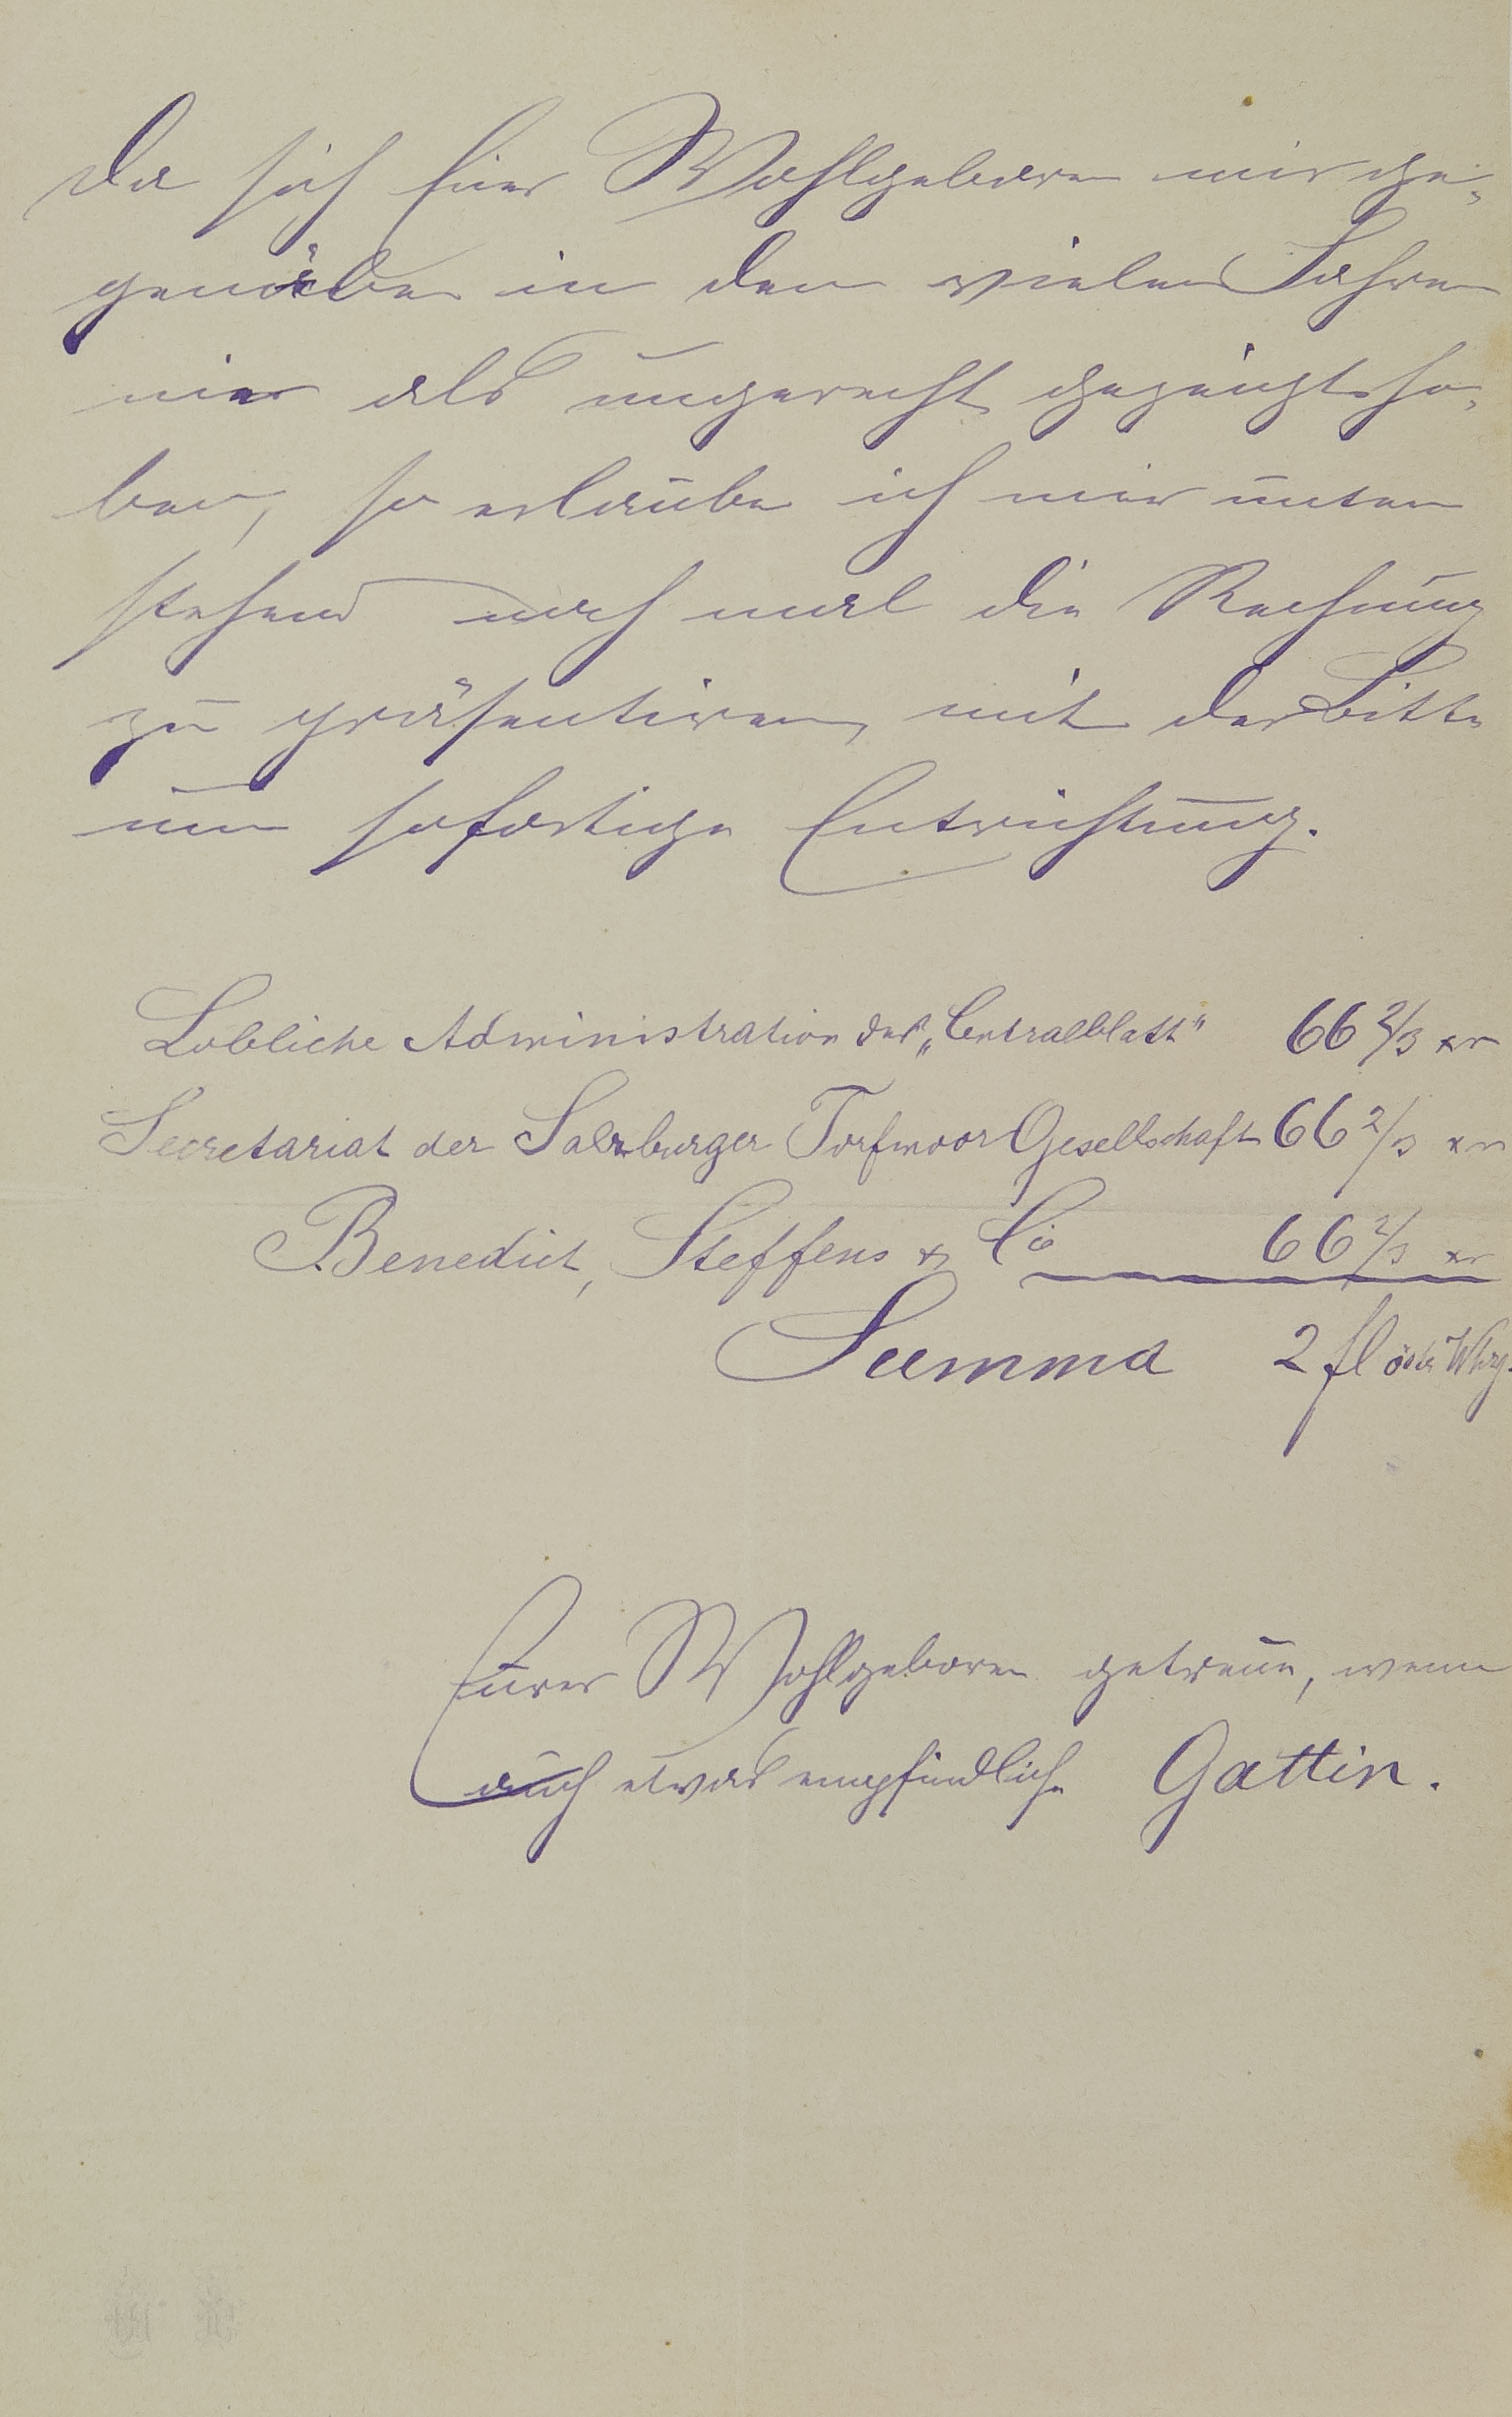 Da sich Euer Wohlgeboren mir ge-
genüber in den vielen Jahren
nie als ungerecht gezeigt ha-
ben, so erlaube ich mir unten
stehend noch mal die Rechnung
zu präsentiren, mit der Bitte
um sofortige Entrichtung.
Löbliche Administration des „Centralblatt" 66 2/3 xr
Secretariat der Salzburger Torfmoor Gesellschaft 66 2/3 xr
Benedict, Steffens & Co 66 2/3 xr
Summa 2 fl östr Whrg.
Eurer Wohlgeboren getreue, wenn
auch etwas empfindliche Gattin.